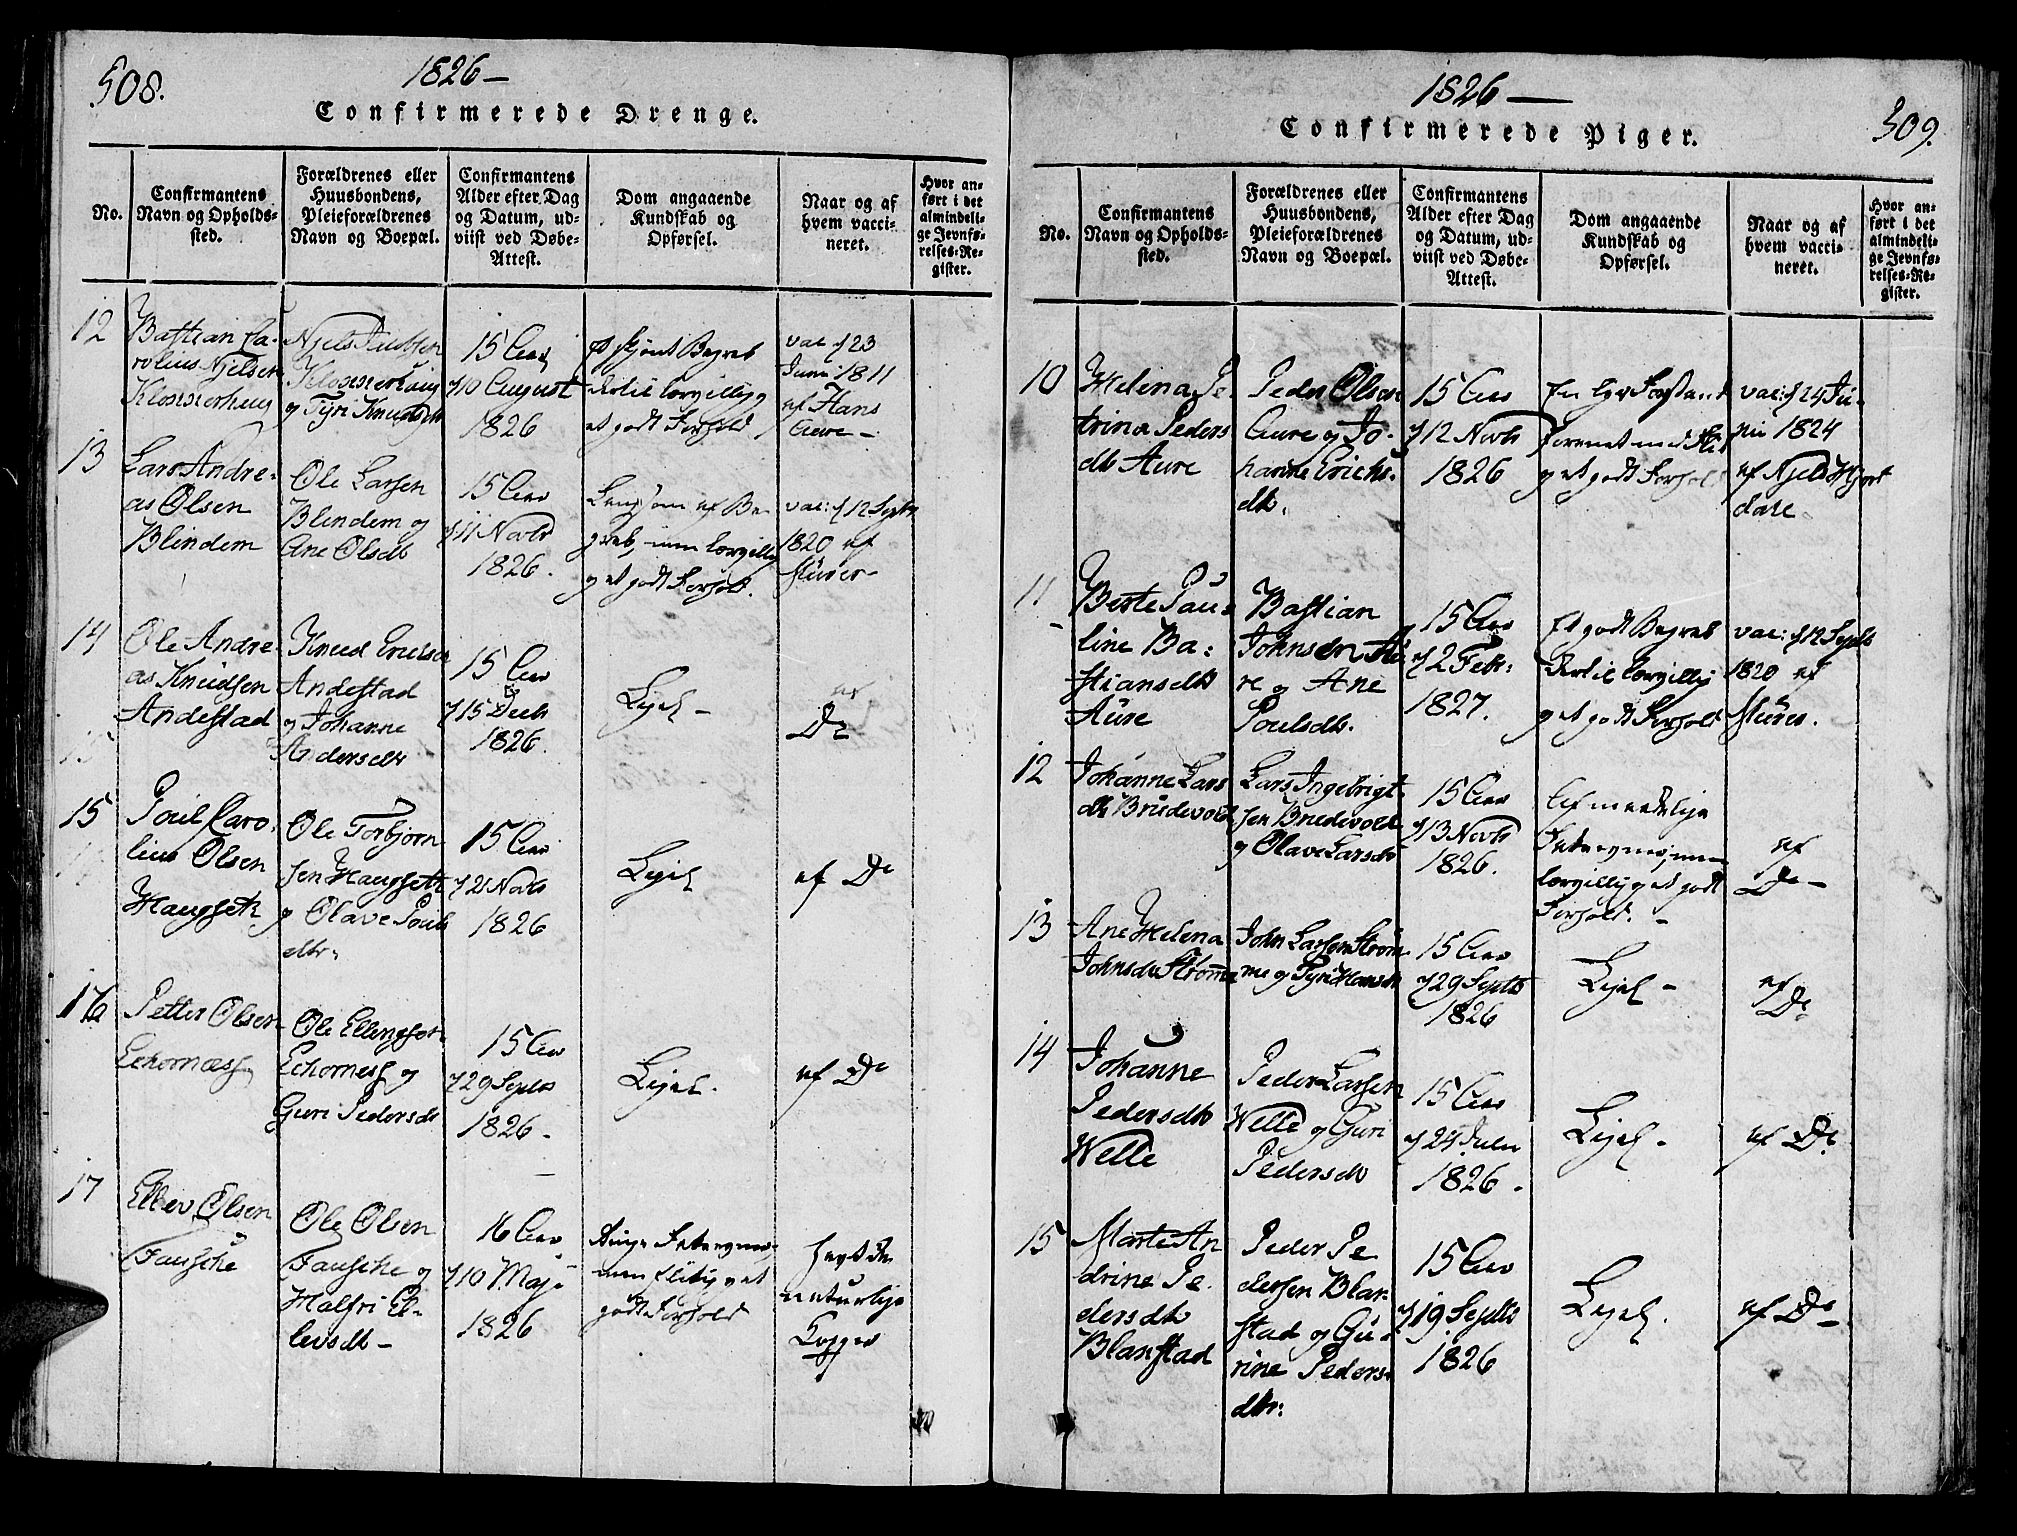 508.
1826 –
Confirmerede Drenge.
No.
Confirmantens
Navn og Opholds-
sted.
Forældrenes eller
Huusbondens,
Pleieforældrenes
Navn og Boepæl.
Confirmantens
Alder efter Dag
og Datum, ud-
viist ved Døbe-
Attest.
Dom angaaende
Kundskab og
Opførsel.
Naar og af
hvem vacci-
neret.
Hvor an-
ført i det
almindeli-
ge Jevnfø-
relses-Re-
gister.
12
Bastian Ca-
rolius Njelsen
Klosterhaug
Njels
Klosterhaug
og Tyri Knudsdt
15 Aar
d 10 August
1826
Et skjønt Begreb
og
et godt Forhold
vac d 23
Juni 1811
af Hans
Aure –
13
Lars Andre-
as Olsen
Blindem
Ole Larsen
Blindem og
Ane Olsdt
15 Aar
d 11 Novbr
1826.
Langsom af Be-
greb, men
og et godt Forhold.
vac: d 12 Septr
1820 af
Stürer –
14
Ole Andre-
as Knudsen
Andestad
Knud Ericksen
Andestad
og Johanne
Andersdtr
15 Aar
d 15 Decbr
1826.
Ligel –
af
Do
15
Poul Caro-
lius Olsen
Haugseth
Ole Torbjørn
sen Haugseth
og Olave Pouls
dtr.
15 Aar
d 2 Novbr
1826
Ligel
af Do
16
Petter Olsen
Echornæss
Ole Ellingsen
Echornæss og
Guri Pedersdtr
15 Aar
d 29 Septbr
1826 –
Ligel –
af Do
17
Ellev Olsen
Fausche
Ole Olsen
Fausche og
Malfri El-
levsdtr –
16 Aar
d 10 Maji
1826
Ringe
men flitig og et
godt Forhold
havt de
naturlige
Kopper
1826 –
509.
Confirmerede Piger.
No.
Confirmantens
Navn og Opholds-
sted.
Forældrenes eller
Huusbondens,
Pleieforældrenes
Navn og Boepæl.
Confirmantens
Alder efter Dag
og Datum, ud-
viist ved Døbe-
Attest.
Dom angaaende
Kundskab og
Opførsel.
Naar og af
hvem vacci-
neret.
Hvor an-
ført i det
almindeli-
ge Jevnfø-
relses-Re-
gister.
10
Helena Pe
trina Peders
dtr Aure
Peder Olsen
Aure og Jo-
hanne Erichs-
dtr.
15 Aar
d 12 Novbr
1826
En god Forstand
forenet med Flid
og et godt Forhold
vac: d 24 Ju-
1824
af Njels Hjort
dare
11
Berte Pau-
line Ba-
stiansdtr
Aure
Bastian
Johnsen Au
re og Ane
Poulsdtr.
15 Aar
d 2 Febr:
1827.
Et godt Begreb
og et godt Forhold
vac: d 12 Septbr
1820 af
Stürer.
12
Johanne Lars
dtr Brudevold
Lars Ingebrigt-
sen Brudevold
og Olave Larsdtr
15 Aar
d 13 Novbr
1826.
Af maadelige
og et godt
Forhold. –
af
Do –
13
Ane Helena
Johnsdtr Strømme
John Larsen Strøm
me og Tyri Hansdtr
15 Aar
d 29 Septbr
1826
Ligel –
af
Do
14
Johanne
Pedersdtr
Welle
Peder Larsen
Welle og Guri
Pedersdtr
15 Aar
d 24 Julii
1826.
Ligel –
af Do
15
Marte An
drine Pe
dersdtr
Blanstad
Peder Pe
dersen Blan
stad og Gu-
rine Peders-
dtr.
15 Aar
d 19 Septbr
1826
Ligel.
af Do –